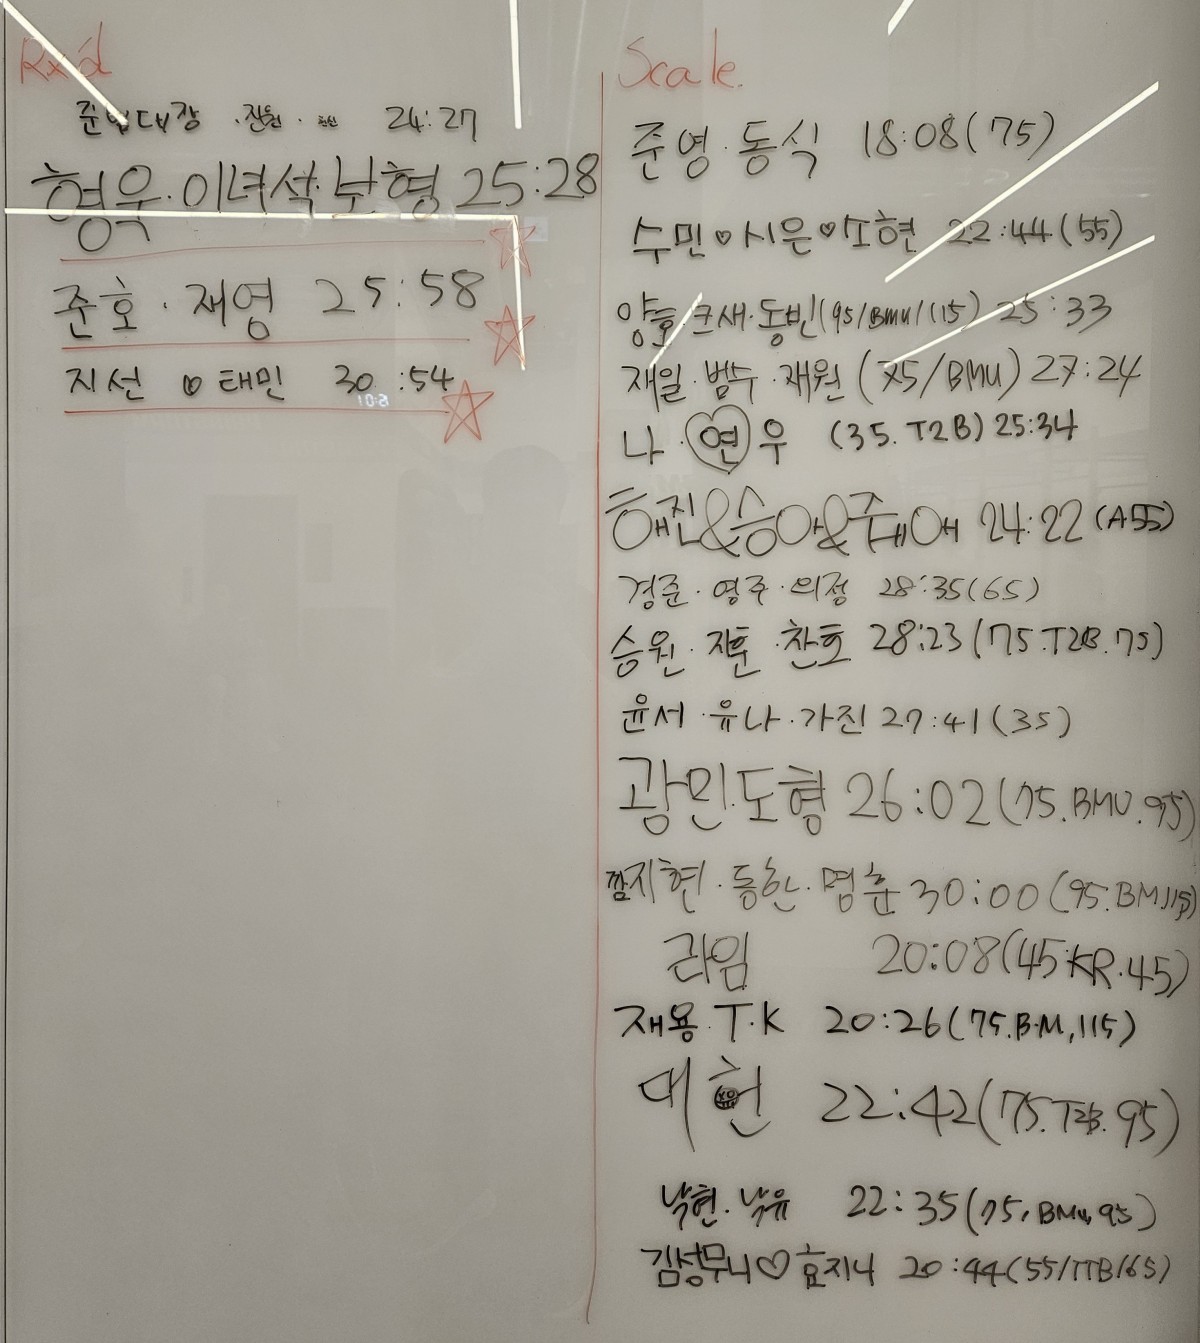 Rx'd
준법대장 · 잔원 · 24:27
형욱·이녀석·보형 25:28
준호 · 재영 25:58
지선 ♡ 태민 30:54
Scale.
준영·동식 18:08(75)
수민♡시은♡소현 22:44(55)
양호·크새·동빈(95/BMU/115) 25:33
재일·범수·재원 (75/BMU) 27:24
나·연우 (35.T2B) 25:34
혜진&승아&주애 24:22 (A55)
경준·영주·의정 28:35(65)
승원·지훈·찬호 28:23(75.T2B.75)
윤서·유나·가진 27:41(35)
광민·도형 26:02(75.BMU.95)
깜지현·동한·명훈 30:00(95.BM.115)
라임 20:08(45.KR.45)
재용·T·K 20:26(75.B.M,115)
대헌 22:42(75.T2B.95)
낙현·낙유 22:35(75,BMU,95)
김성무니♡효지니 20:44(55/TTB/65)